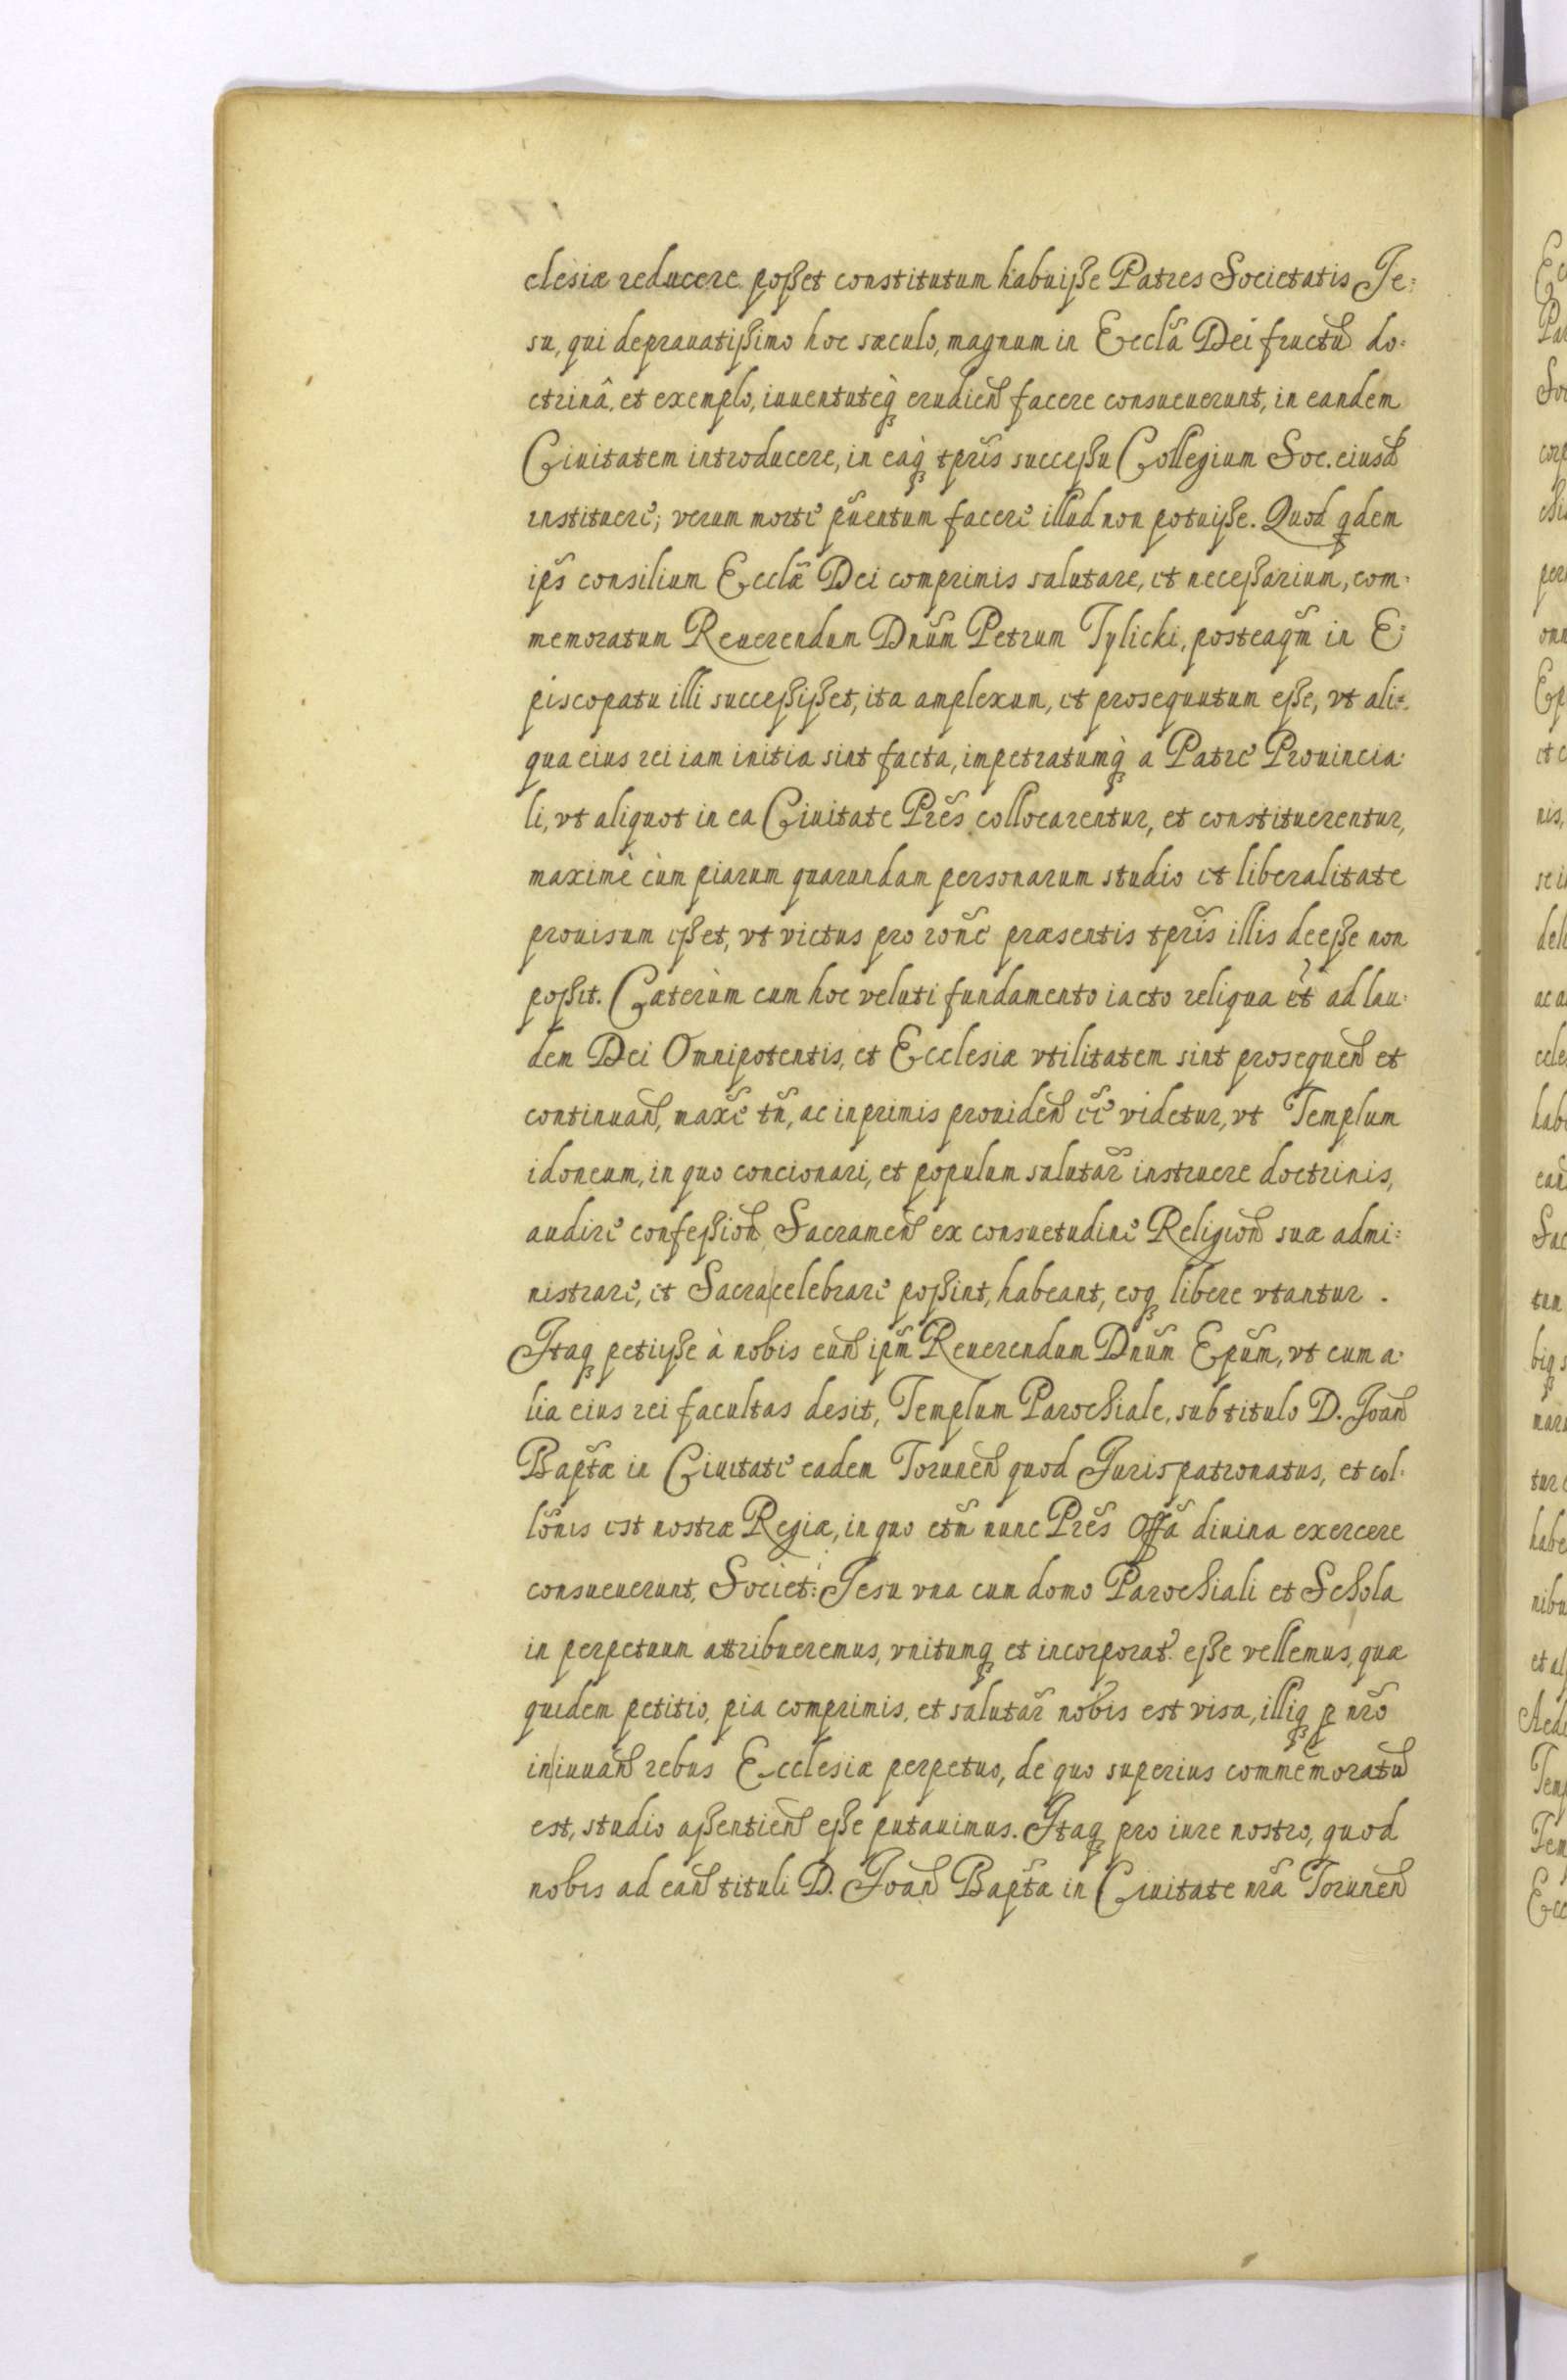 clesiæ reducere poßet constitutum habuiße Patres Societatis Je:
su, qui deprauatißimo hoc sæculo, magnum in Eccla͂ Dei fructu͂ do:
ctrinâ, et exemplo, iuuentuteq̀ȝ erudien͂ facere consueuerunt, in eandem
Ciuitatem introducere, in eaq̀ȝ tpr̃is succeßu Collegium Soc. eiusd͂
instituere; verum morte p̃uentum facere illud non potuiße. Quod qdem
ip̃s consilium Eccl̃æ Dei comprimis salutare, et neceßarium, com:
memoratum Reuerendum Dnũm Petrum Tylicki, posteaqm̃ in E:
piscopatu illi succeßißet, ita amplexum, et prosequutum eße, vt ali:
qua eius rei iam initia sint facta, impetratumq̀ȝ a Patre Prouincia:
li, vt aliquot in ea Ciuitate Pr̃es collocarentur, et constituerentur,
maximè cùm piarum quarundam personarum studio et liberalitate
prouisum eßet, vt victus pro rone͂ præsentis tpr̃is illis deeße non
poßit. Cæterùm cum hoc veluti fundamento iacto reliqua et͂ ad lau:
dem Dei Omnipotentis, et Ecclesiæ vtilitatem sint prosequen͂ et
continuan͂, maxe͂ tn͂, ac inprimis prouiden͂ ee͂ videtur, vt Templum
idoneum, in quo concionari, et populum salutar͂ instruere doctrinis,
audire confeßion͂ Sacramen͂ ex consuetudine Religion͂ suæ admi:
nistrare, et Sacra|celebrare poßint, habeant, eoqȝ libere vtantur.
Itaqȝ petiiße à nobis eun͂ ipm̃ Reuerendum Dnũm Epũm, vt cum a:
lia eius rei facultas desit, Templum Parochiale, sub titulo D. Joan͂
Bap̃tæ in Ciuitate eadem Torunen͂ quod Juris patronatus, et col:
lo͂nis est nostræ Regiæ, in quo etm̃ nunc Pr̃es Offa͂ diuina exercere
consueuerunt, Societ: Jesu vna cum domo Parochiali et Schola
in perpetuum attribueremus, vnitumqȝ et incorporat. eße vellemus, quæ
quidem petitio, pia comprimis, et salutar͂ nobis est visa, illiqȝ p nr̃o
in|iuuan͂ rebus Ecclesiæ perpetuo, de quo superius commemoratu͂
est, studio aßentien͂ eße putauimus. Itaqȝ pro iure nostro, quod
nobis ad ean͂ tituli D. Joan͂ Bap̃tæ in Ciuitate nr̃a Torunen͂